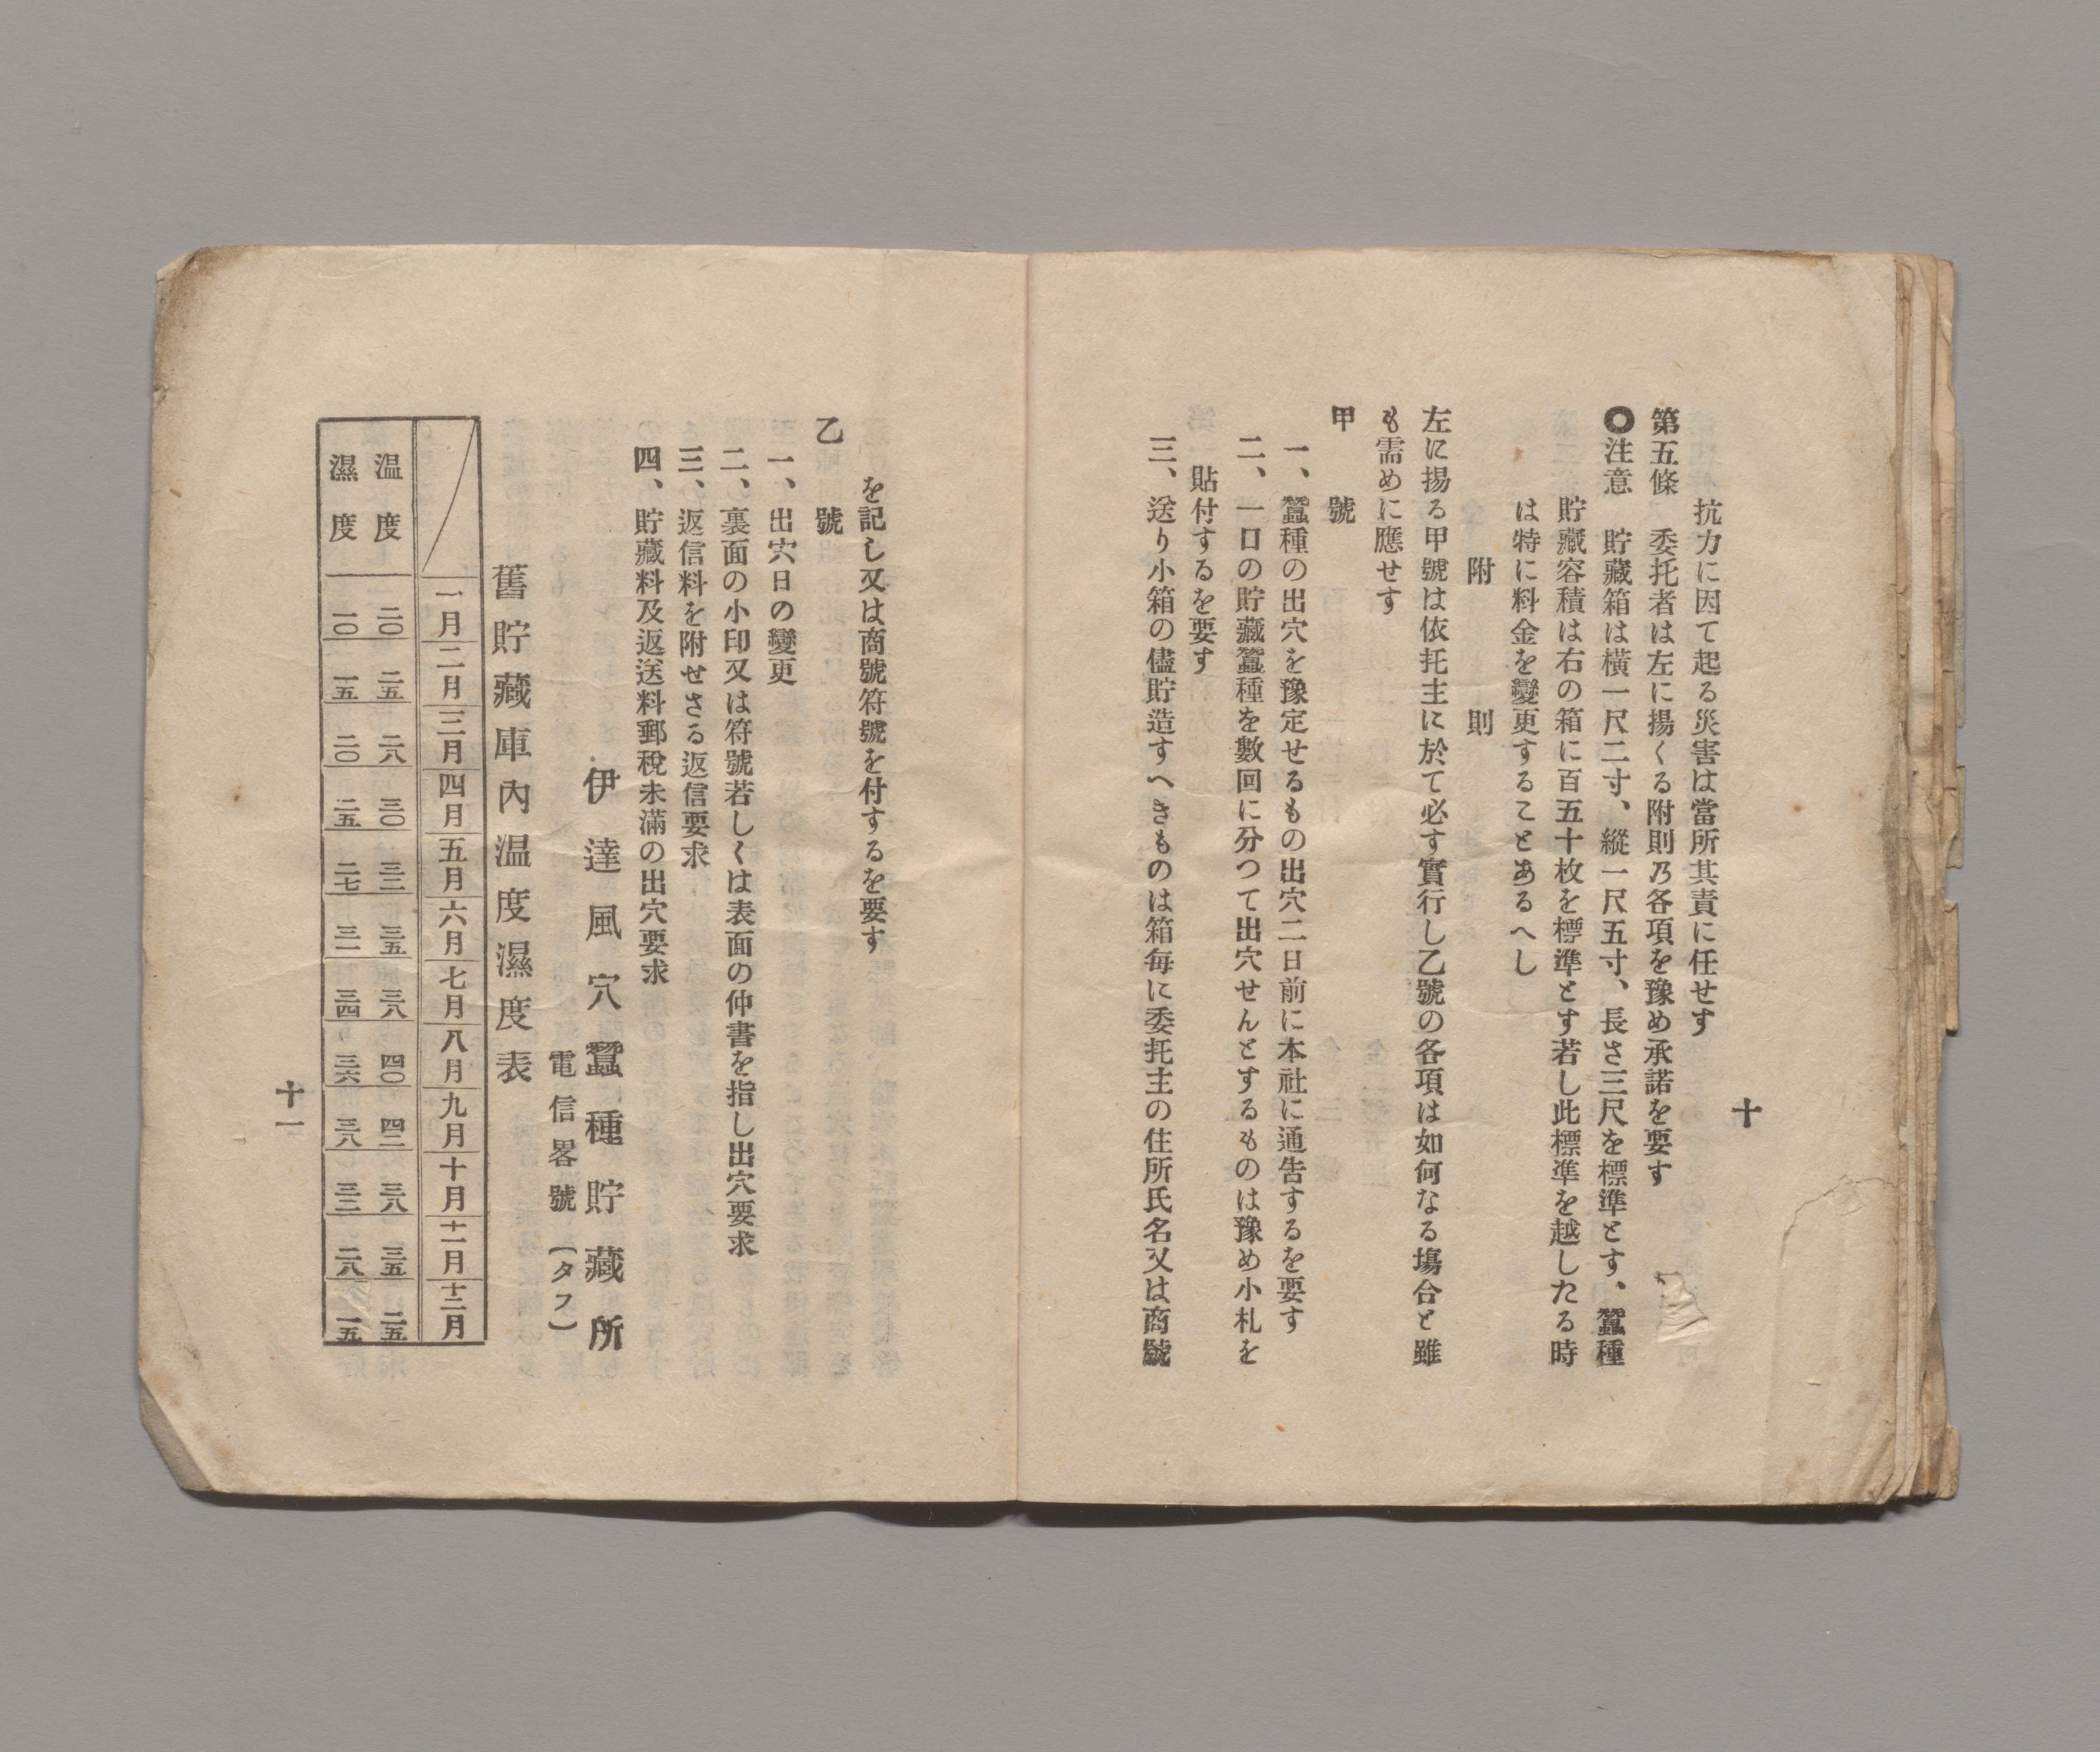 十
抗力に因て起る災害は當所其責に任せす
第五條　委托者は左に揚くる附則乃各項を豫め承諾を要す
◎注意　貯藏箱は横一尺二寸、縱一尺五寸、長さ三尺を標準とす、蠶種
貯藏容積は右の箱に百五十枚を標準とす若し此標準を越したる時
は特に料金を變更することあるへし
附　則
左に揚る甲號は依托主に於て必す實行し乙號の各項は如何なる塲合と雖
も需めに應せす
甲　號
一、蠶種の出穴を豫定せるもの出穴二日前に本社に通告するを要す
二、一口の貯藏蠶種を數回に分つて出穴せんとするものは豫め小札を
貼付するを要す
三、送り小箱の儘貯造すへきものは箱毎に委托主の住所氏名又は商號
を記し又は商號符號を付するを要す
乙　號
一、出穴日の變更
二、裏面の小印又は符號若しくは表面の仲書を指し出穴要求
三、返信料を附せさる返信要求
四、貯藏料及返送料郵稅未滿の出穴要求
伊達風穴蠶種貯藏所
電信畧號（タフ）
舊貯藏庫內温度濕度表
一月　二月　三月　四月　五月　六月　七月　八月　九月　十月　十一月　十二月
温度　二〇　二五　二八　三〇　三二　三五　三八　四〇　四二　三八　三五　二五
濕度　一〇　一五　二〇　二五　二七　三一　三四　三六　三八　三二　二八　一五
十一